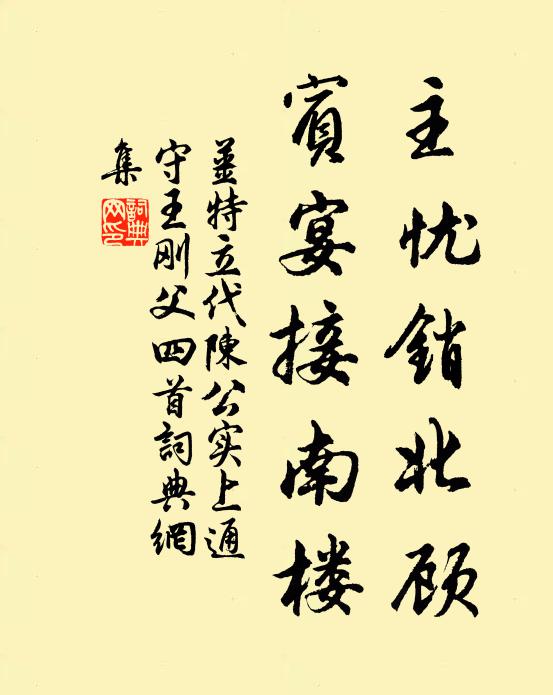 主忧销北顾
宾宴接南楼
姜特立代陳公实上通
守王刚父四首詞典網
集
詞典网印